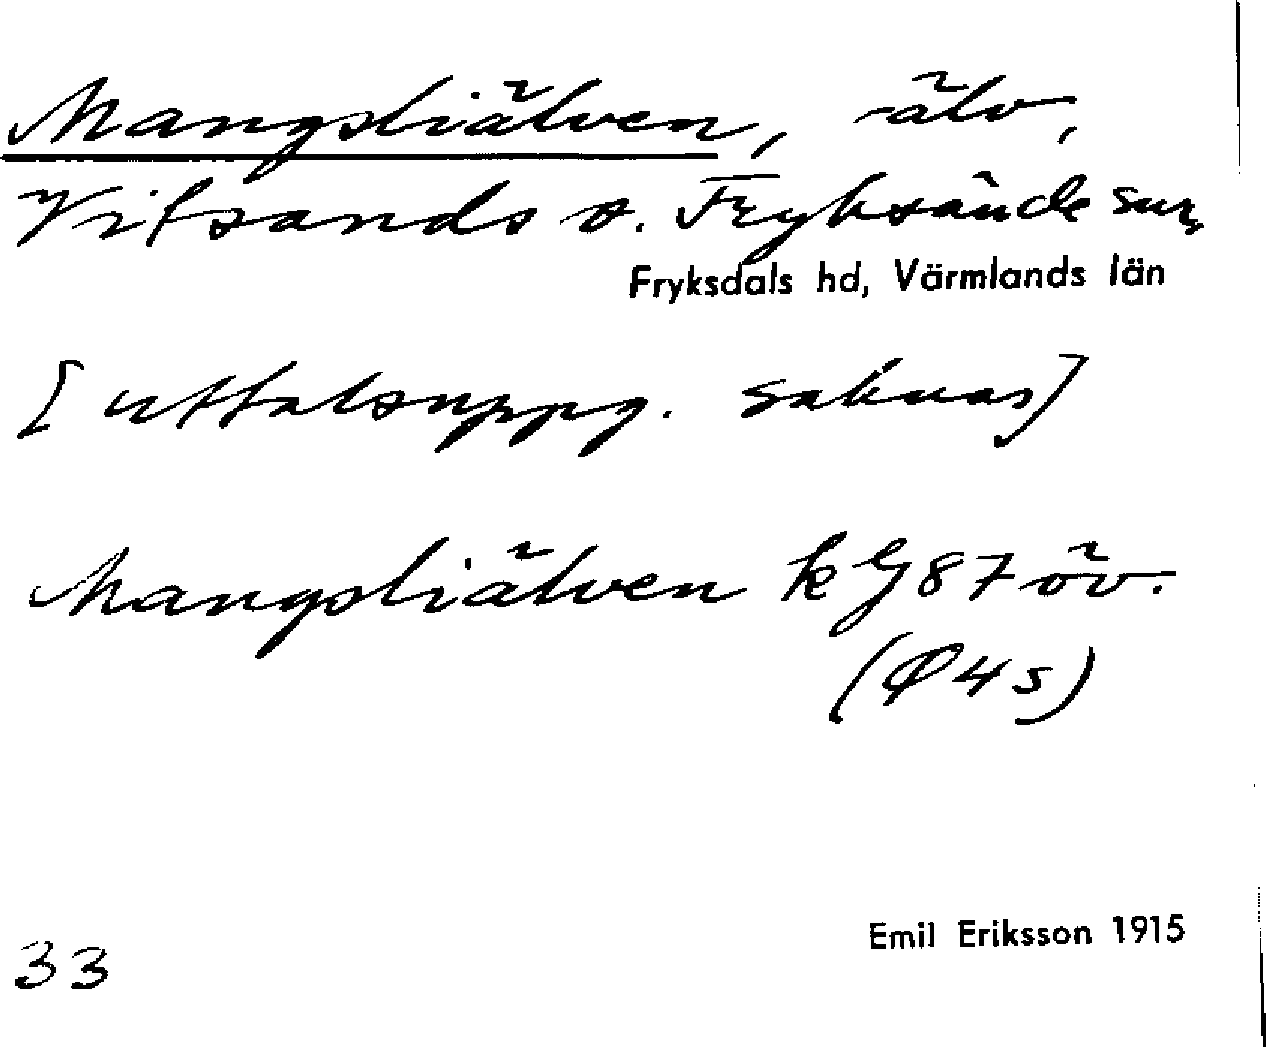 Mangsliälven, älv,
Vitsands o. Fryksände snr,
Fryksdals hd, Värmlands län
[uttalsuppg. saknas]
Mangsliälven k G 87 öv.
(Ø 4 s)
Emil Eriksson 1915
33